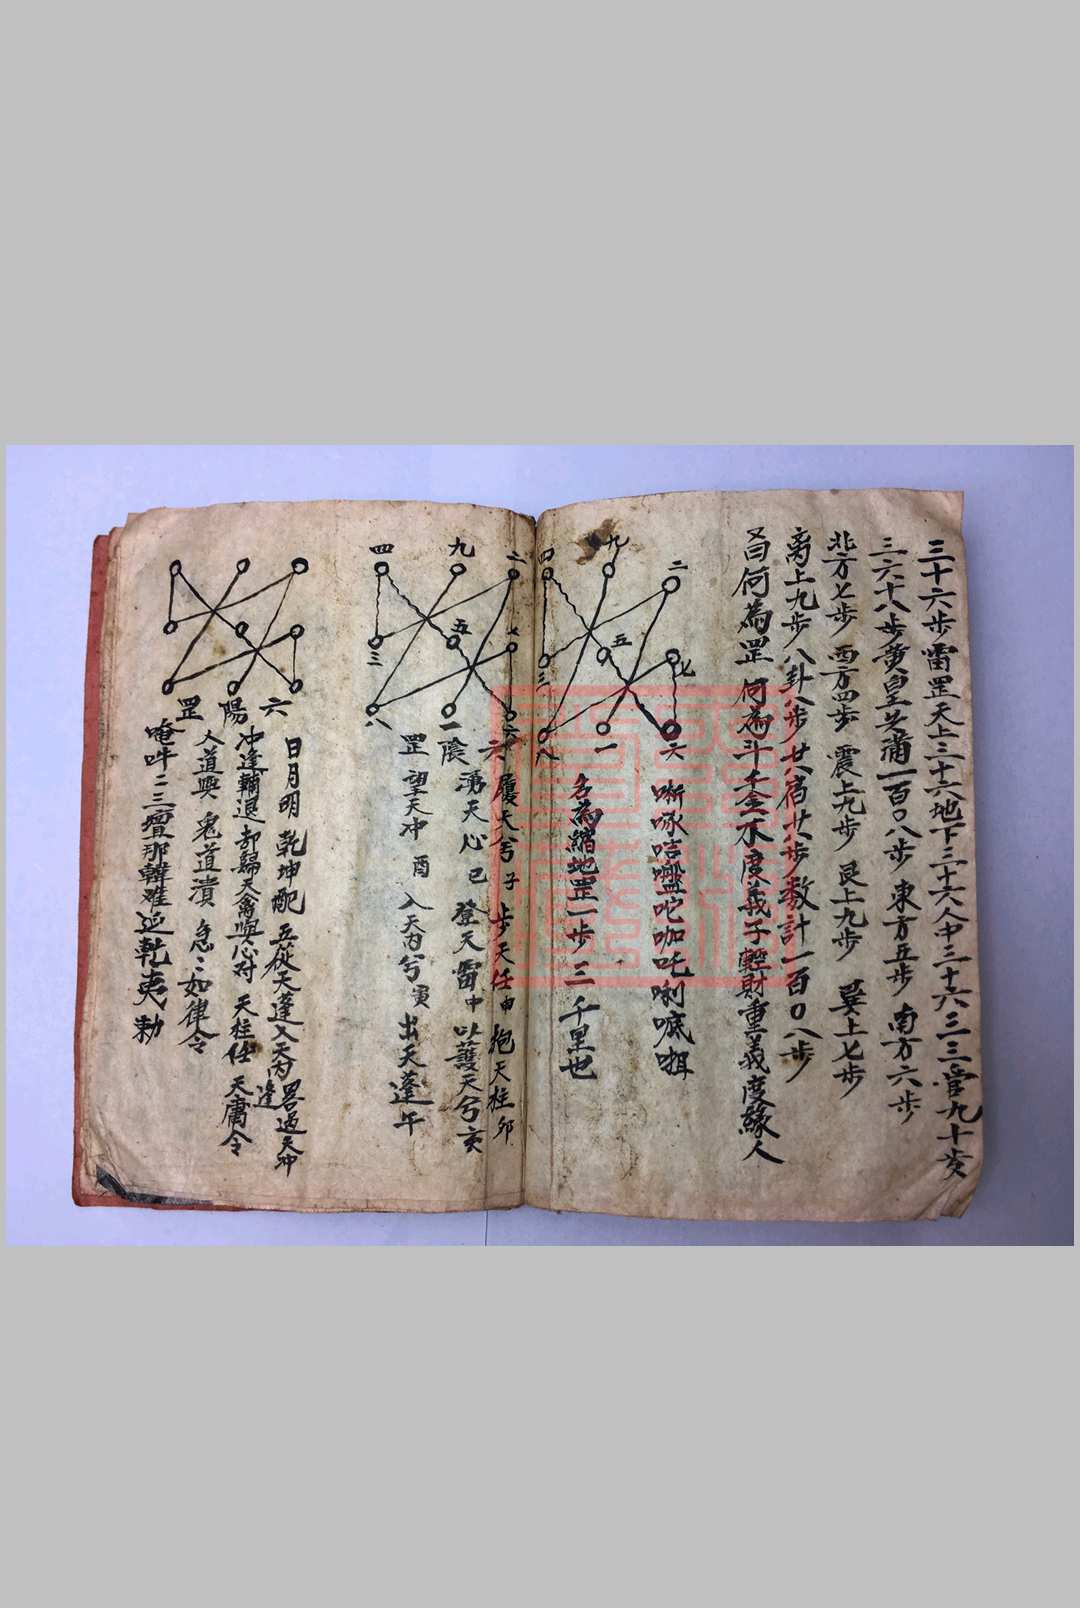 三十六步雷罡天上三十六地下三十六人中三十六三三管九十步
三六十八步黄皇芝蒲一百〇八步東方五步 南方六步
北方七步 西方四步 震上九步 艮上九步 巽上七步
离上九步八卦八步廿八宿廿八步数計一百〇八步
又曰何為罡 何為斗千金不度義子輕財重義度緣人
二
七
六
九
五
一
四
三
八
名為縮地罡一步三千里也
二
七
六
九
五
一
四
三
八
六 履天芮子 步天任申 抱天柱卯
陰 湧天心巳 登天雷中 以護天兮亥
罡 望天冲 酉 入天芮兮寅 出天蓬午
六
陽
罡
日月明 乾坤配 五從天蓬入天芮 畧過天冲
冲逢輔退却歸天禽與心对 天柱任逢 天庸令
人道興 鬼道潰 急〻如律令
唵吽二三壇那韓難延乾夷勅